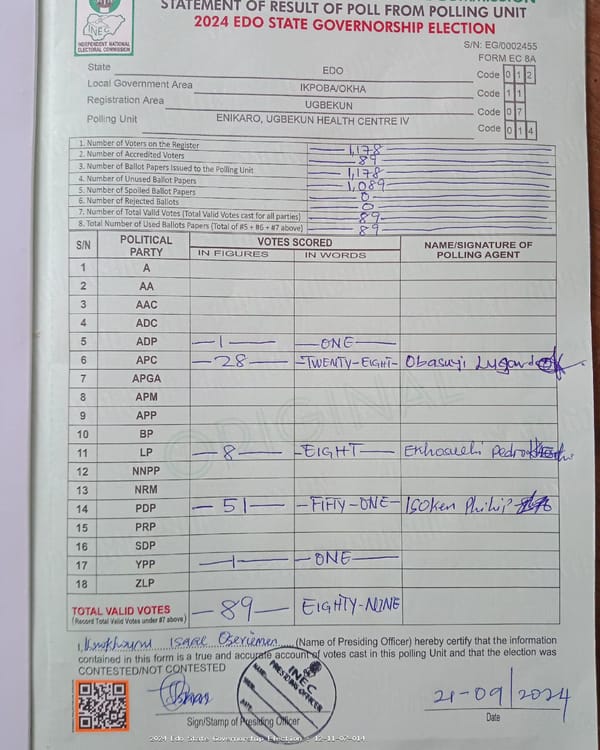 INEC
INDEPENDENT NATIONAL
ELECTORAL COMMISSION
STATEMENT OF RESULT OF POLL FROM POLLING UNIT
2024 EDO STATE GOVERNORSHIP ELECTION
S/N: EG/0002455
FORM EC 8A
State EDO Code 0 1 2
Local Government Area IKPOBA/OKHA Code 1 1
Registration Area UGBEKUN Code 0 7
Polling Unit ENIKARO, UGBEKUN HEALTH CENTRE IV Code 0 1 4
1. Number of Voters on the Register 1,178
2. Number of Accredited Voters 89
3. Number of Ballot Papers Issued to the Polling Unit 1,178
4. Number of Unused Ballot Papers 1,089
5. Number of Spoiled Ballot Papers 0
6. Number of Rejected Ballots 0
7. Number of Total Valid Votes (Total Valid Votes cast for all parties) 89
8. Total Number of Used Ballots Papers (Total of #5 + #6 + #7 above) 89
S/N POLITICAL PARTY VOTES SCORED NAME/SIGNATURE OF POLLING AGENT
IN FIGURES IN WORDS
1 A
2 AA
3 AAC
4 ADC
5 ADP 1 ONE
6 APC 28 TWENTY-EIGHT Obasuyi Lugard
7 APGA
8 APM
9 APP
10 BP
11 LP 8 EIGHT Pedro
12 NNPP
13 NRM
14 PDP 51 FIFTY-ONE Isoken Philip
15 PRP
16 SDP
17 YPP 1 ONE
18 ZLP
TOTAL VALID VOTES 89 EIGHTY-NINE
(Record Total Valid Votes under #7 above)
I, Isaac (Name of Presiding Officer) hereby certify that the information
contained in this form is a true and accurate account of votes cast in this polling Unit and that the election was
CONTESTED/NOT CONTESTED
INEC
PRESIDING OFFICER
NAME:
DATE
21-09/2024
Sign/Stamp of Presiding Officer Date
2024 Edo State Governorship Election - 12-11-07-014